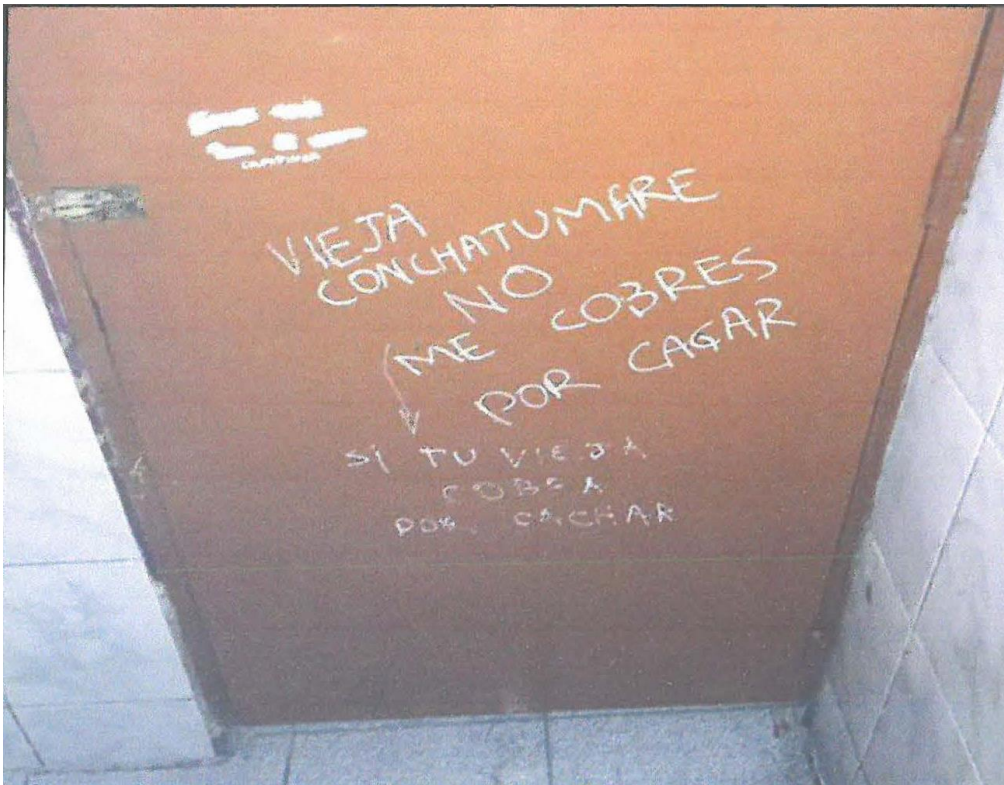 VIEJA
CONCHATUMARE
NO
ME COBRES
POR CAGAR
SI TU VIEJA
COBRA
POR CACHAR